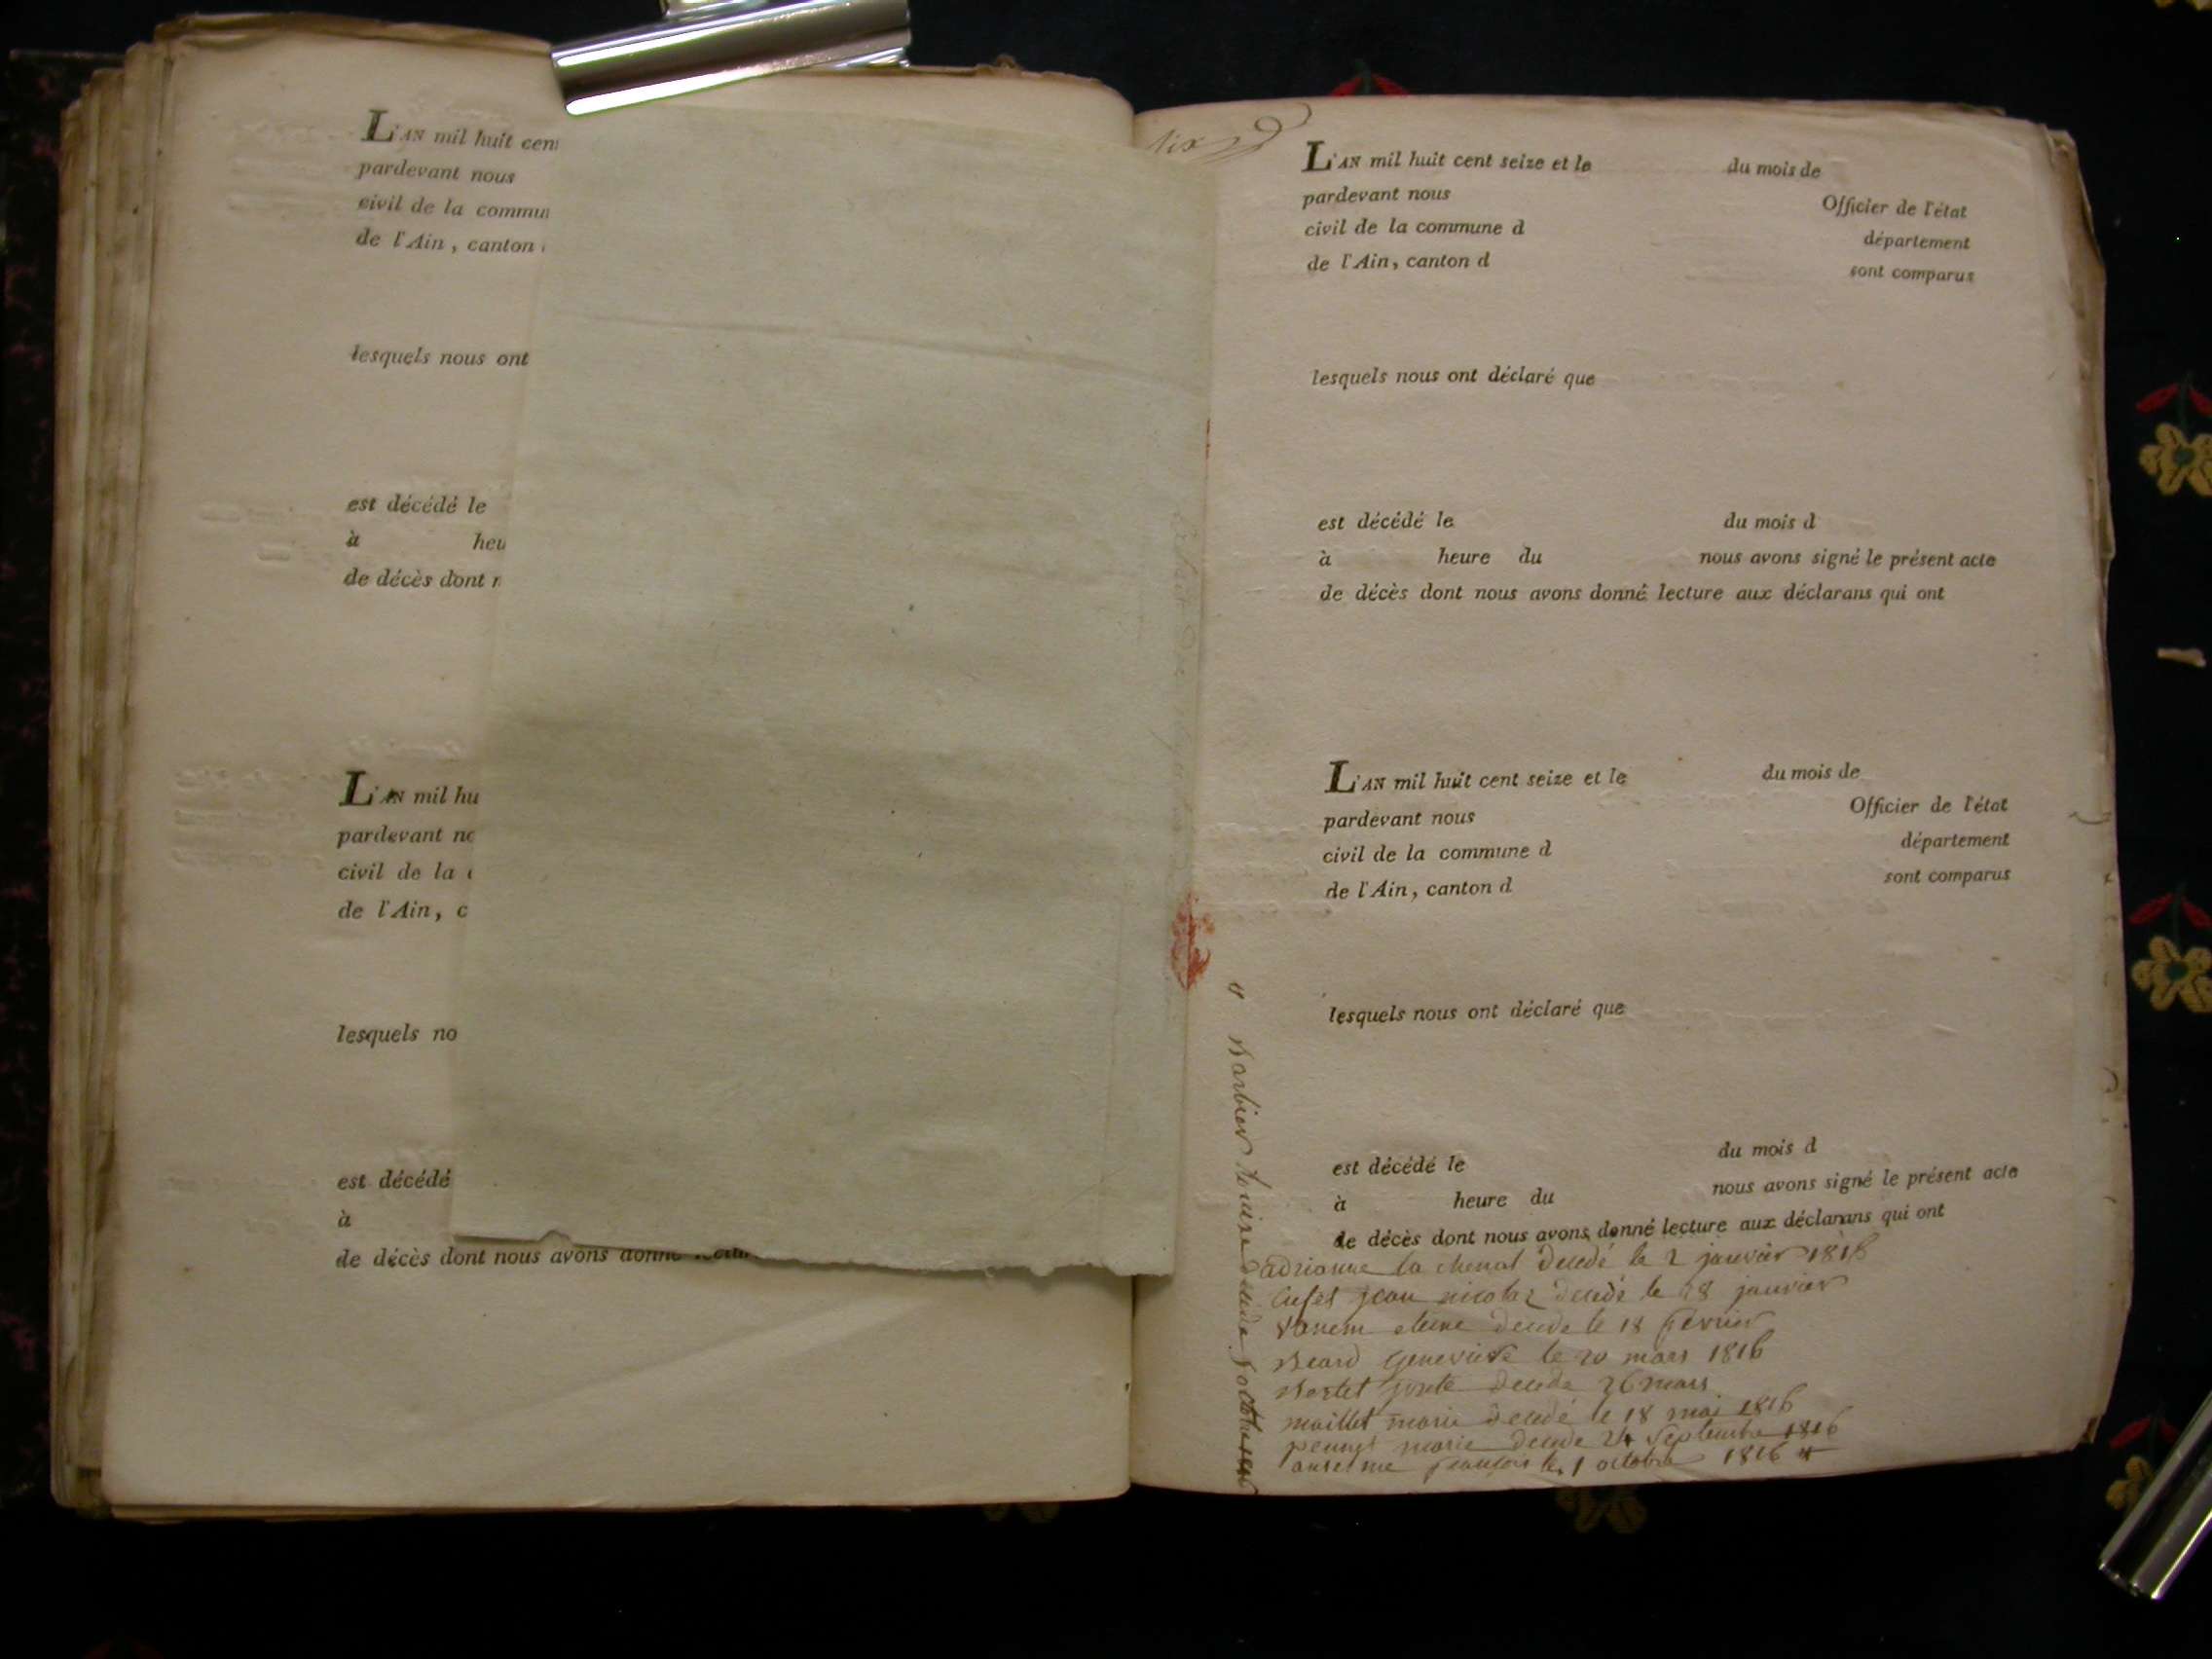 L'AN mil huit cen
pardevant nous
civil de la commu
de l'Ain, canton
lesquels nous ont
est décédé le
à heu
de décès dont n
L'AN mil hu
pardevant no
civil de la
de l'Ain, c
lesquels no
est décédé
à
de décès dont nous avons donné
six
L'AN mil huit cent seize et le du mois de
pardevant nous Officier de l'état
civil de la commune d département
de l'Ain, canton d sont comparus
lesquels nous ont déclaré que
est décédé le du mois d
à heure du nous avons signé le présent acte
de décès dont nous avons donné lecture aux déclarans qui ont
L'AN mil huit cent seize et le du mois de
pardevant nous Officier de l'état
civil de la commune d département
de l'Ain, canton d sont comparus
lesquels nous ont déclaré que
est décédé le du mois d
à heure du nous avons signé le présent acte
de décès dont nous avons donné lecture aux déclarans qui ont
adrianne la chenal decedé le 2 janvier 1816
jean nicolaz decedé le 28 janvier
decede le 18 fevrier
Beard genevieve le 20 mars 1816
Bortet decede 26 mars
maillet marie decedé le 18 mai 1816
marie decede 24 Septembre 1816
anselme françois le 1 octobre 1816
Barbier decede